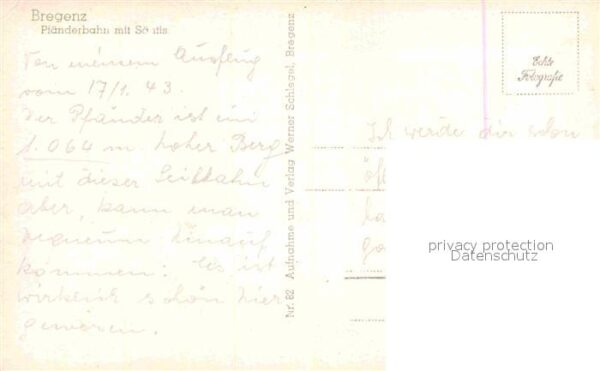 Bregenz
Pfänderbahn mit Säntis
Von meinem Ausflug
vom 17/1. 43.
Der Pfänder ist ein
1.064 m. hoher Berg
mit dieser Seilbahn
aber, kann man
bequem hinauf
kommen: Es ist
wirklich schön hier
gewesen.
Nr. 82 Aufnahme und Verlag Werner Schlegel, Bregenz
Echte
Fotografie
Ich werde dir schon
privacy protection
Datenschutz